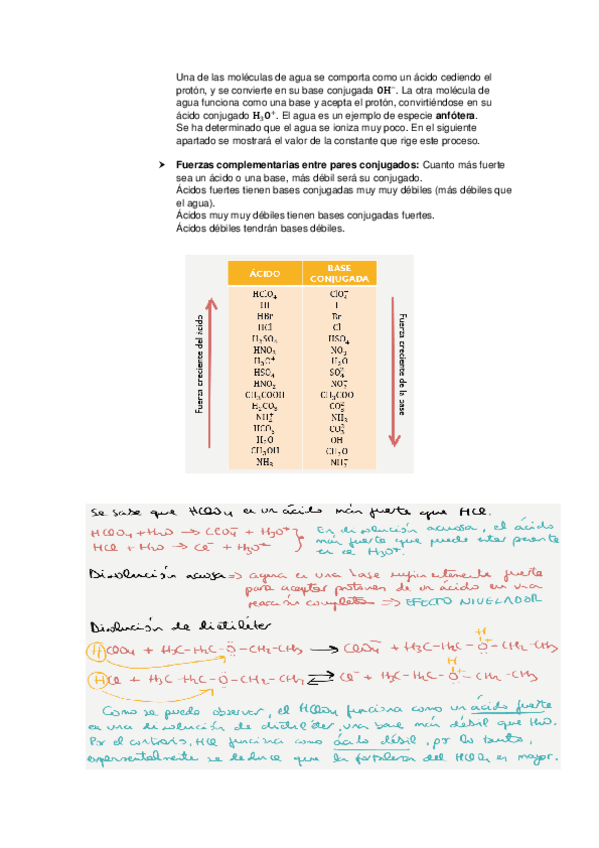 Una de las moléculas de agua se comporta como un ácido cediendo el
protón, y se convierte en su base conjugada OH⁻. La otra molécula de
agua funciona como una base y acepta el protón, convirtiéndose en su
ácido conjugado H₃O⁺. El agua es un ejemplo de especie anfótera.
Se ha determinado que el agua se ioniza muy poco. En el siguiente
apartado se mostrará el valor de la constante que rige este proceso.
➢ Fuerzas complementarias entre pares conjugados: Cuanto más fuerte
sea un ácido o una base, más débil será su conjugado.
Ácidos fuertes tienen bases conjugadas muy muy débiles (más débiles que
el agua).
Ácidos muy muy débiles tienen bases conjugadas fuertes.
Ácidos débiles tendrán bases débiles.
ÁCIDO BASE CONJUGADA
HClO₄ ClO₄⁻
HI I
HBr Br
HCl Cl
H₂SO₄ HSO₄
HNO₃ NO₃
H₃O⁺ H₂O
HSO₄ SO₄²⁻
HNO₂ NO₂⁻
CH₃COOH CH₃COO
H₂CO₃
NH₄⁺ NH₃
HCO₃ CO₃²⁻
H₂O OH
CH₃OH CH₃O
NH₃ NH₂⁻
Fuerza creciente del ácido
Fuerza creciente de la base
Se sabe que HClO₄ es un ácido más fuerte que HCl.
HClO₄ + H₂O → ClO₄⁻ + H₃O⁺
HCl + H₂O → Cl⁻ + H₃O⁺
En disolución acuosa, el ácido
más fuerte que puede estar presente
es el H₃O⁺.
Disolución acuosa ⇒ agua es una base suficientemente fuerte
para aceptar protones de un ácido en una
reacción completa ⇒ EFECTO NIVELADOR
Disolución de dietiléter
H
HClO₄ + H₃C-H₂C-O-CH₂-CH₃ → ClO₄⁻ + H₃C-H₂C-O⁺-CH₂-CH₃
H
HCl + H₃C-H₂C-O-CH₂-CH₃ ⇌ Cl⁻ + H₃C-H₂C-O⁺-CH₂-CH₃
Como se puede observar, el HClO₄ funciona como un ácido fuerte
en una disolución de dietiléter, una base más débil que H₂O.
Por el contrario, HCl funciona como ácido débil, por lo tanto,
experimentalmente se deduce que la fortaleza del HClO₄ es mayor.